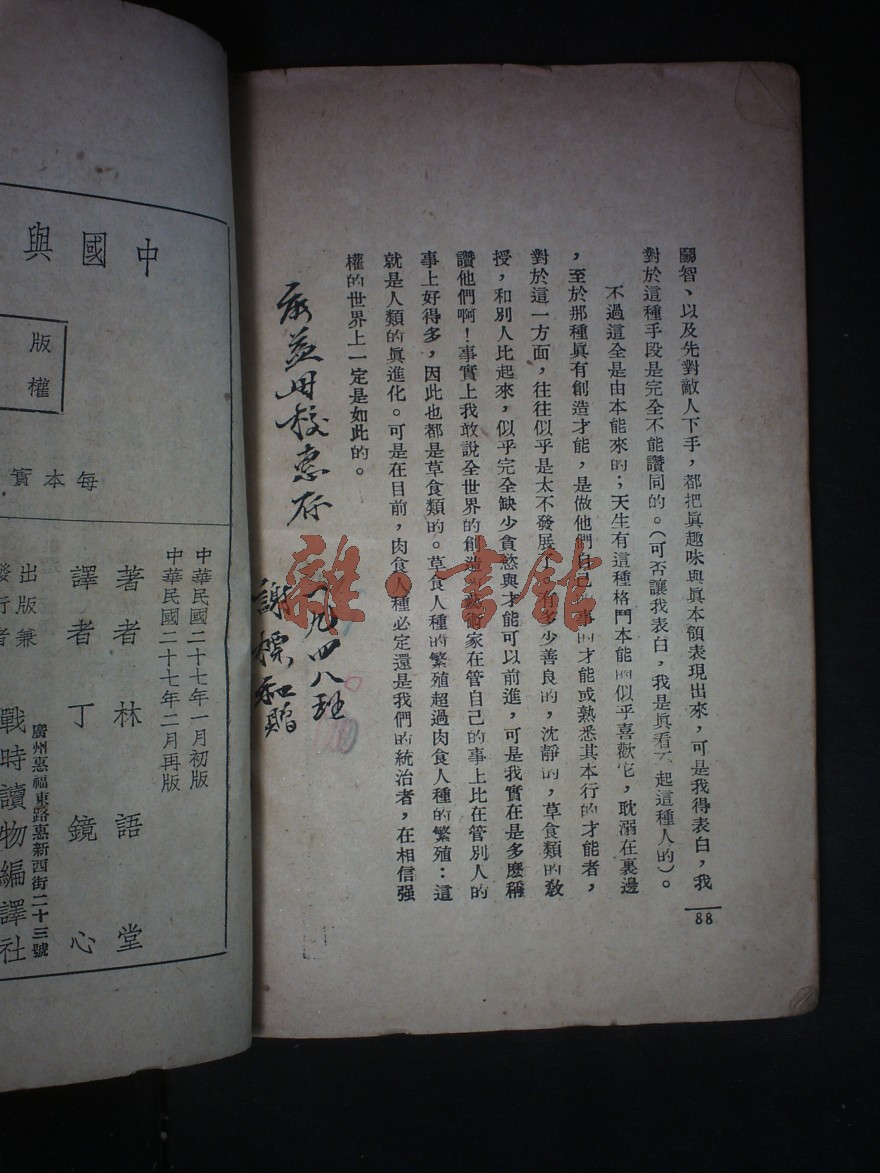 88
鬭智、以及先對敵人下手，都把眞趣味與眞本領表現出來，可是我得表白，我
對於這種手段是完全不能讚同的。（可否讓我表白，我是眞看不起這種人的）。
不過這全是由本能來的；天生有這種格鬥本能的似乎喜歡它，耽溺在裏邊
，至於那種眞有創造才能，是做他們自己事的才能或熟悉其本行的才能者，
對於這一方面，往往似乎是太不發展了。有多少善良的，沈靜的，草食類的敎
授，和別人比起來，似乎完全缺少貪慾與才能可以前進，可是我實在是多麽稱
讚他們啊！事實上我敢說全世界的創造藝術家在管自己的事上比在管別人的
事上好得多，因此也都是草食類的。草食人種的繁殖超過肉食人種的繁殖：這
就是人類的眞進化。可是在目前，肉食人種必定還是我們的統治者，在相信强
權的世界上一定是如此的。
母校惠存
一九四八班
謝標和贈
雜·書館
中國與
版權
每本實
中華民國二十七年一月初版
中華民國二十七年二月再版
著者林語堂
譯者丁鏡心
出版兼
發行者
戰時讀物編譯社
廣州惠福東路惠新西街二十三號